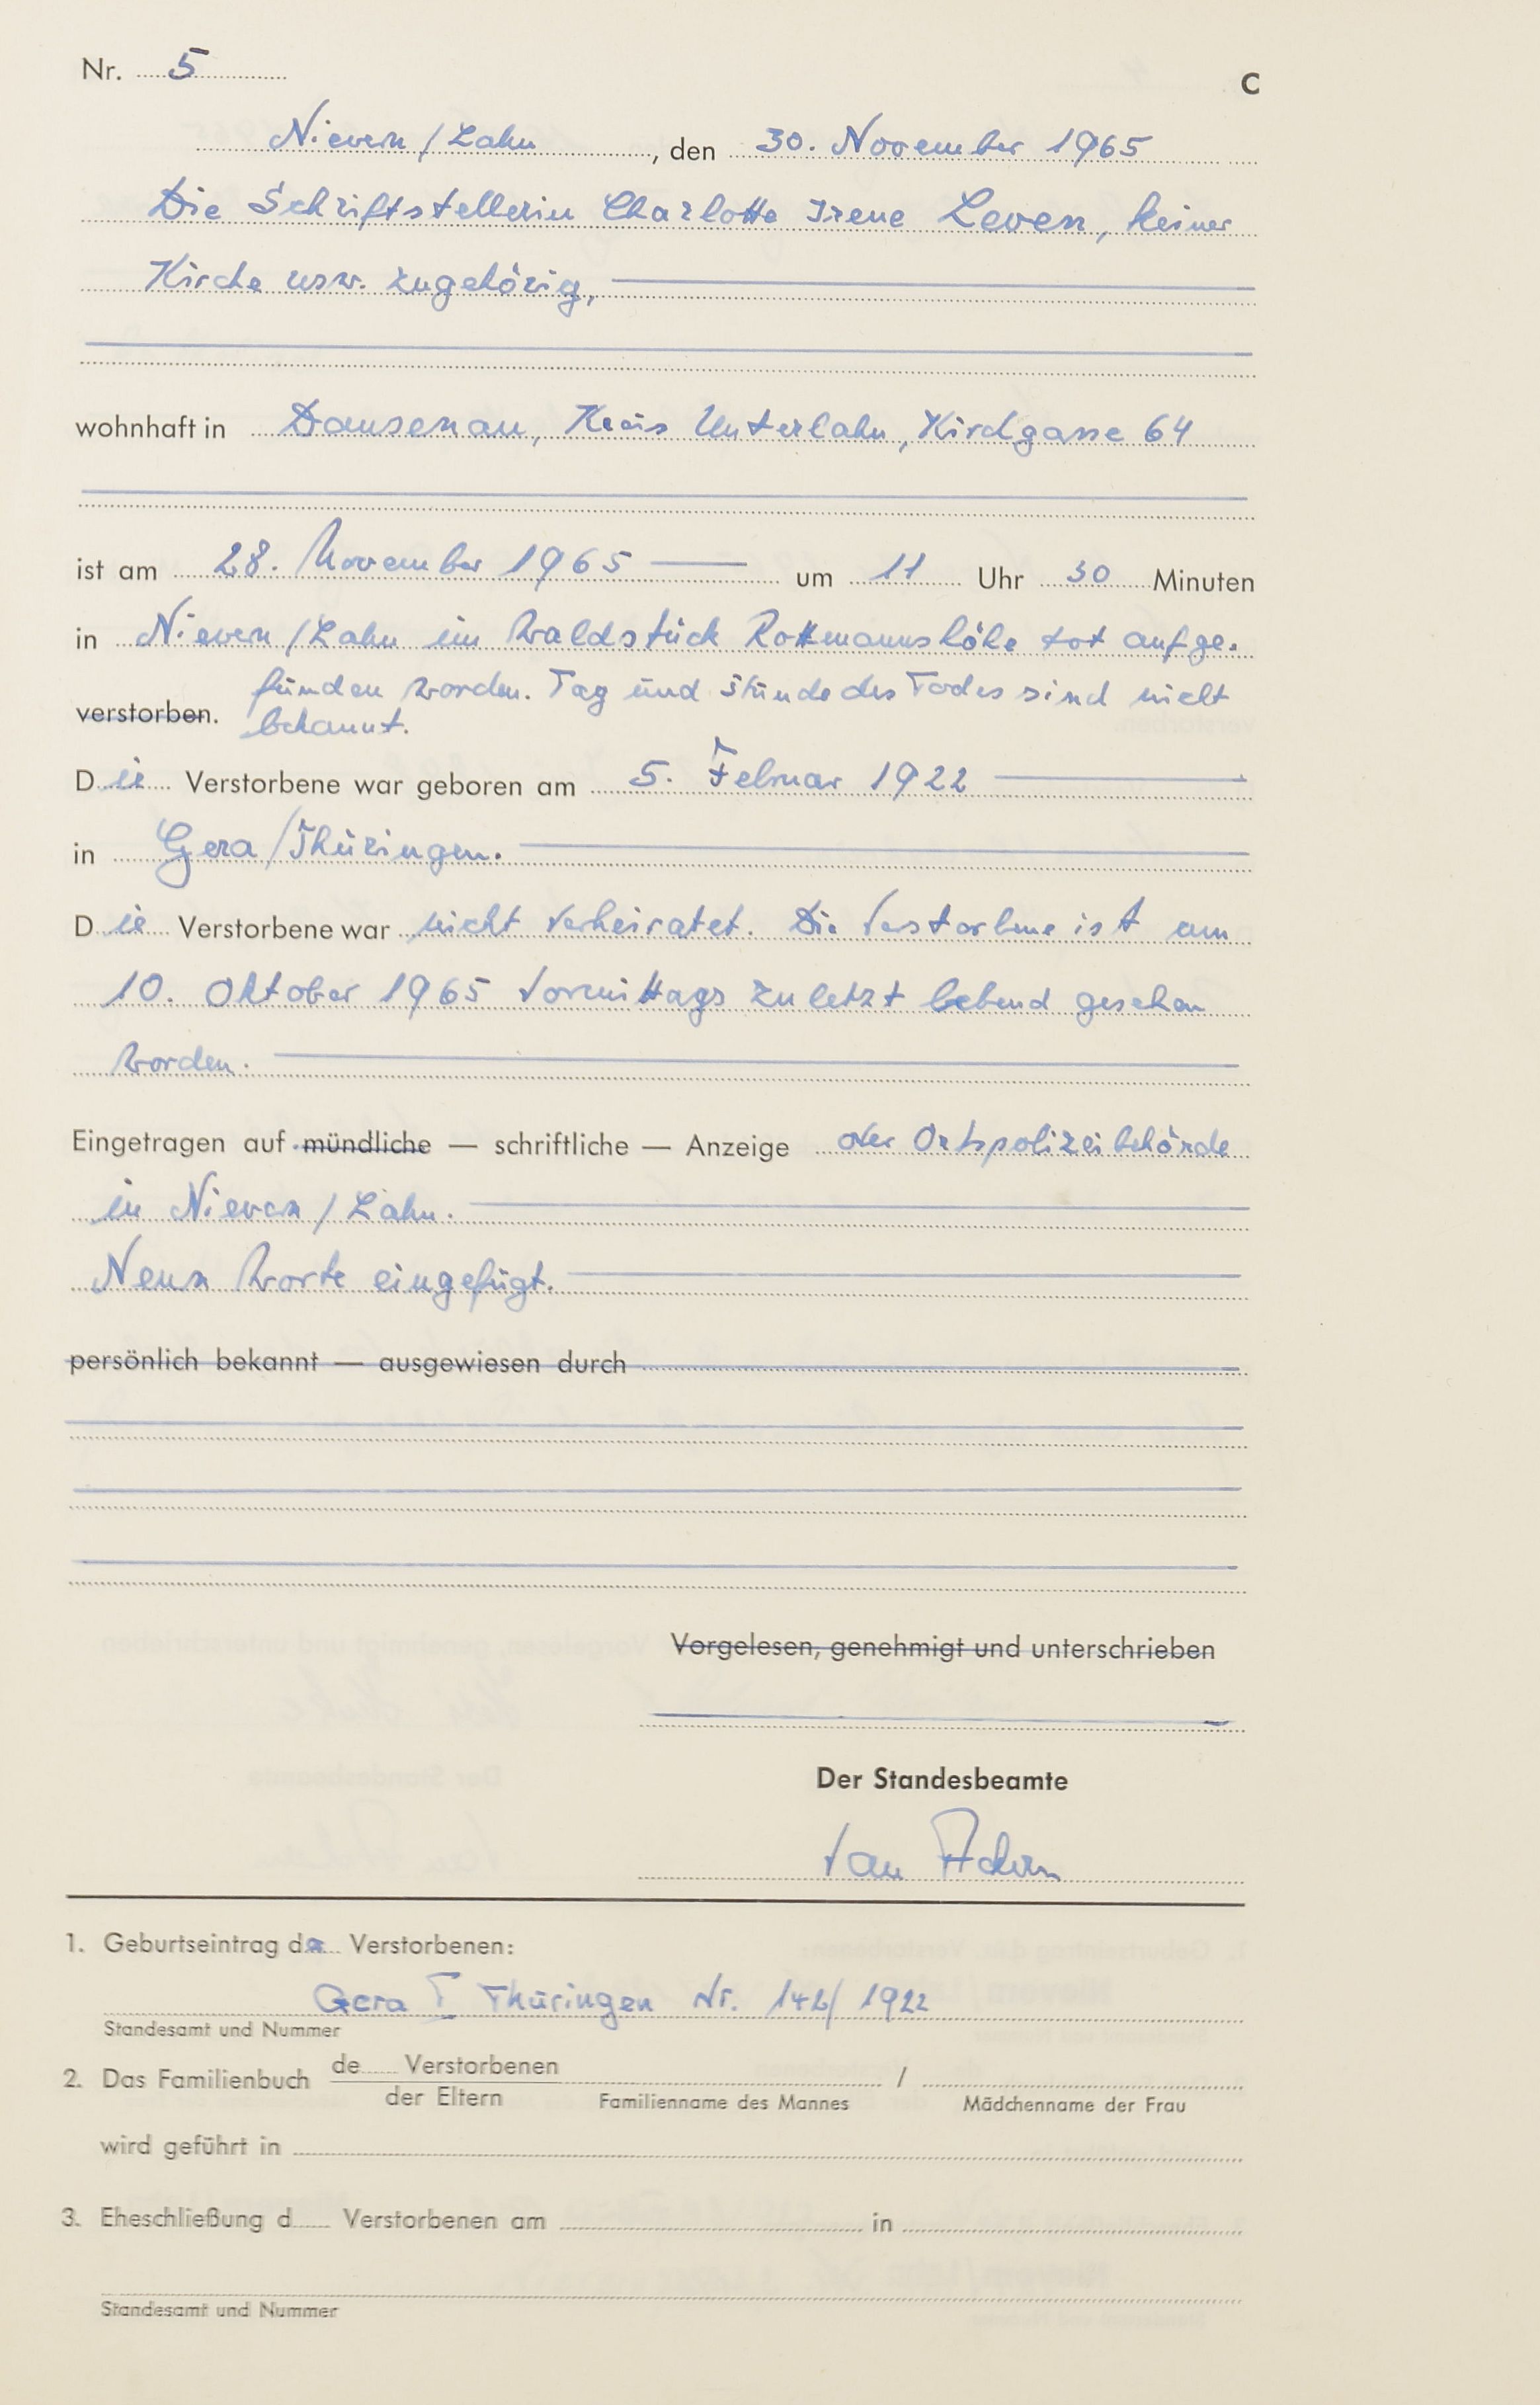 Nr. 5
C
Nievern/Lahn, den 30. November 1965
Die Schriftstellerin Charlotte Irene Leven, keiner
Kirche usw. zugehörig,
wohnhaft in Dausenau, Kreis Unterlahn, Kirchgasse 64
ist am 28. November 1965 um 11 Uhr 30 Minuten
in Nievern/Lahn im Waldstück Rottmannshöhe tot aufge-
funden worden. Tag und Stunde des Todes sind nicht
verstorben. bekannt.
Die Verstorbene war geboren am 5. Februar 1922
in Gera/Thüringen.
Die Verstorbene war nicht verheiratet. Die Verstorbene ist am
10. Oktober 1965 vormittags zuletzt lebend gesehen
worden.
Eingetragen auf mündliche — schriftliche — Anzeige der Ortspolizeibehörde
in Nievern/Lahn.
Neun Worte eingefügt.
persönlich bekannt — ausgewiesen durch
Vorgelesen, genehmigt und unterschrieben
Der Standesbeamte
1. Geburtseintrag der Verstorbenen:
Gera I Thüringen Nr. 142/1922
Standesamt und Nummer
2. Das Familienbuch de Verstorbenen /
der Eltern Familienname des Mannes Mädchenname der Frau
wird geführt in
3. Eheschließung d Verstorbenen am in
Standesamt und Nummer